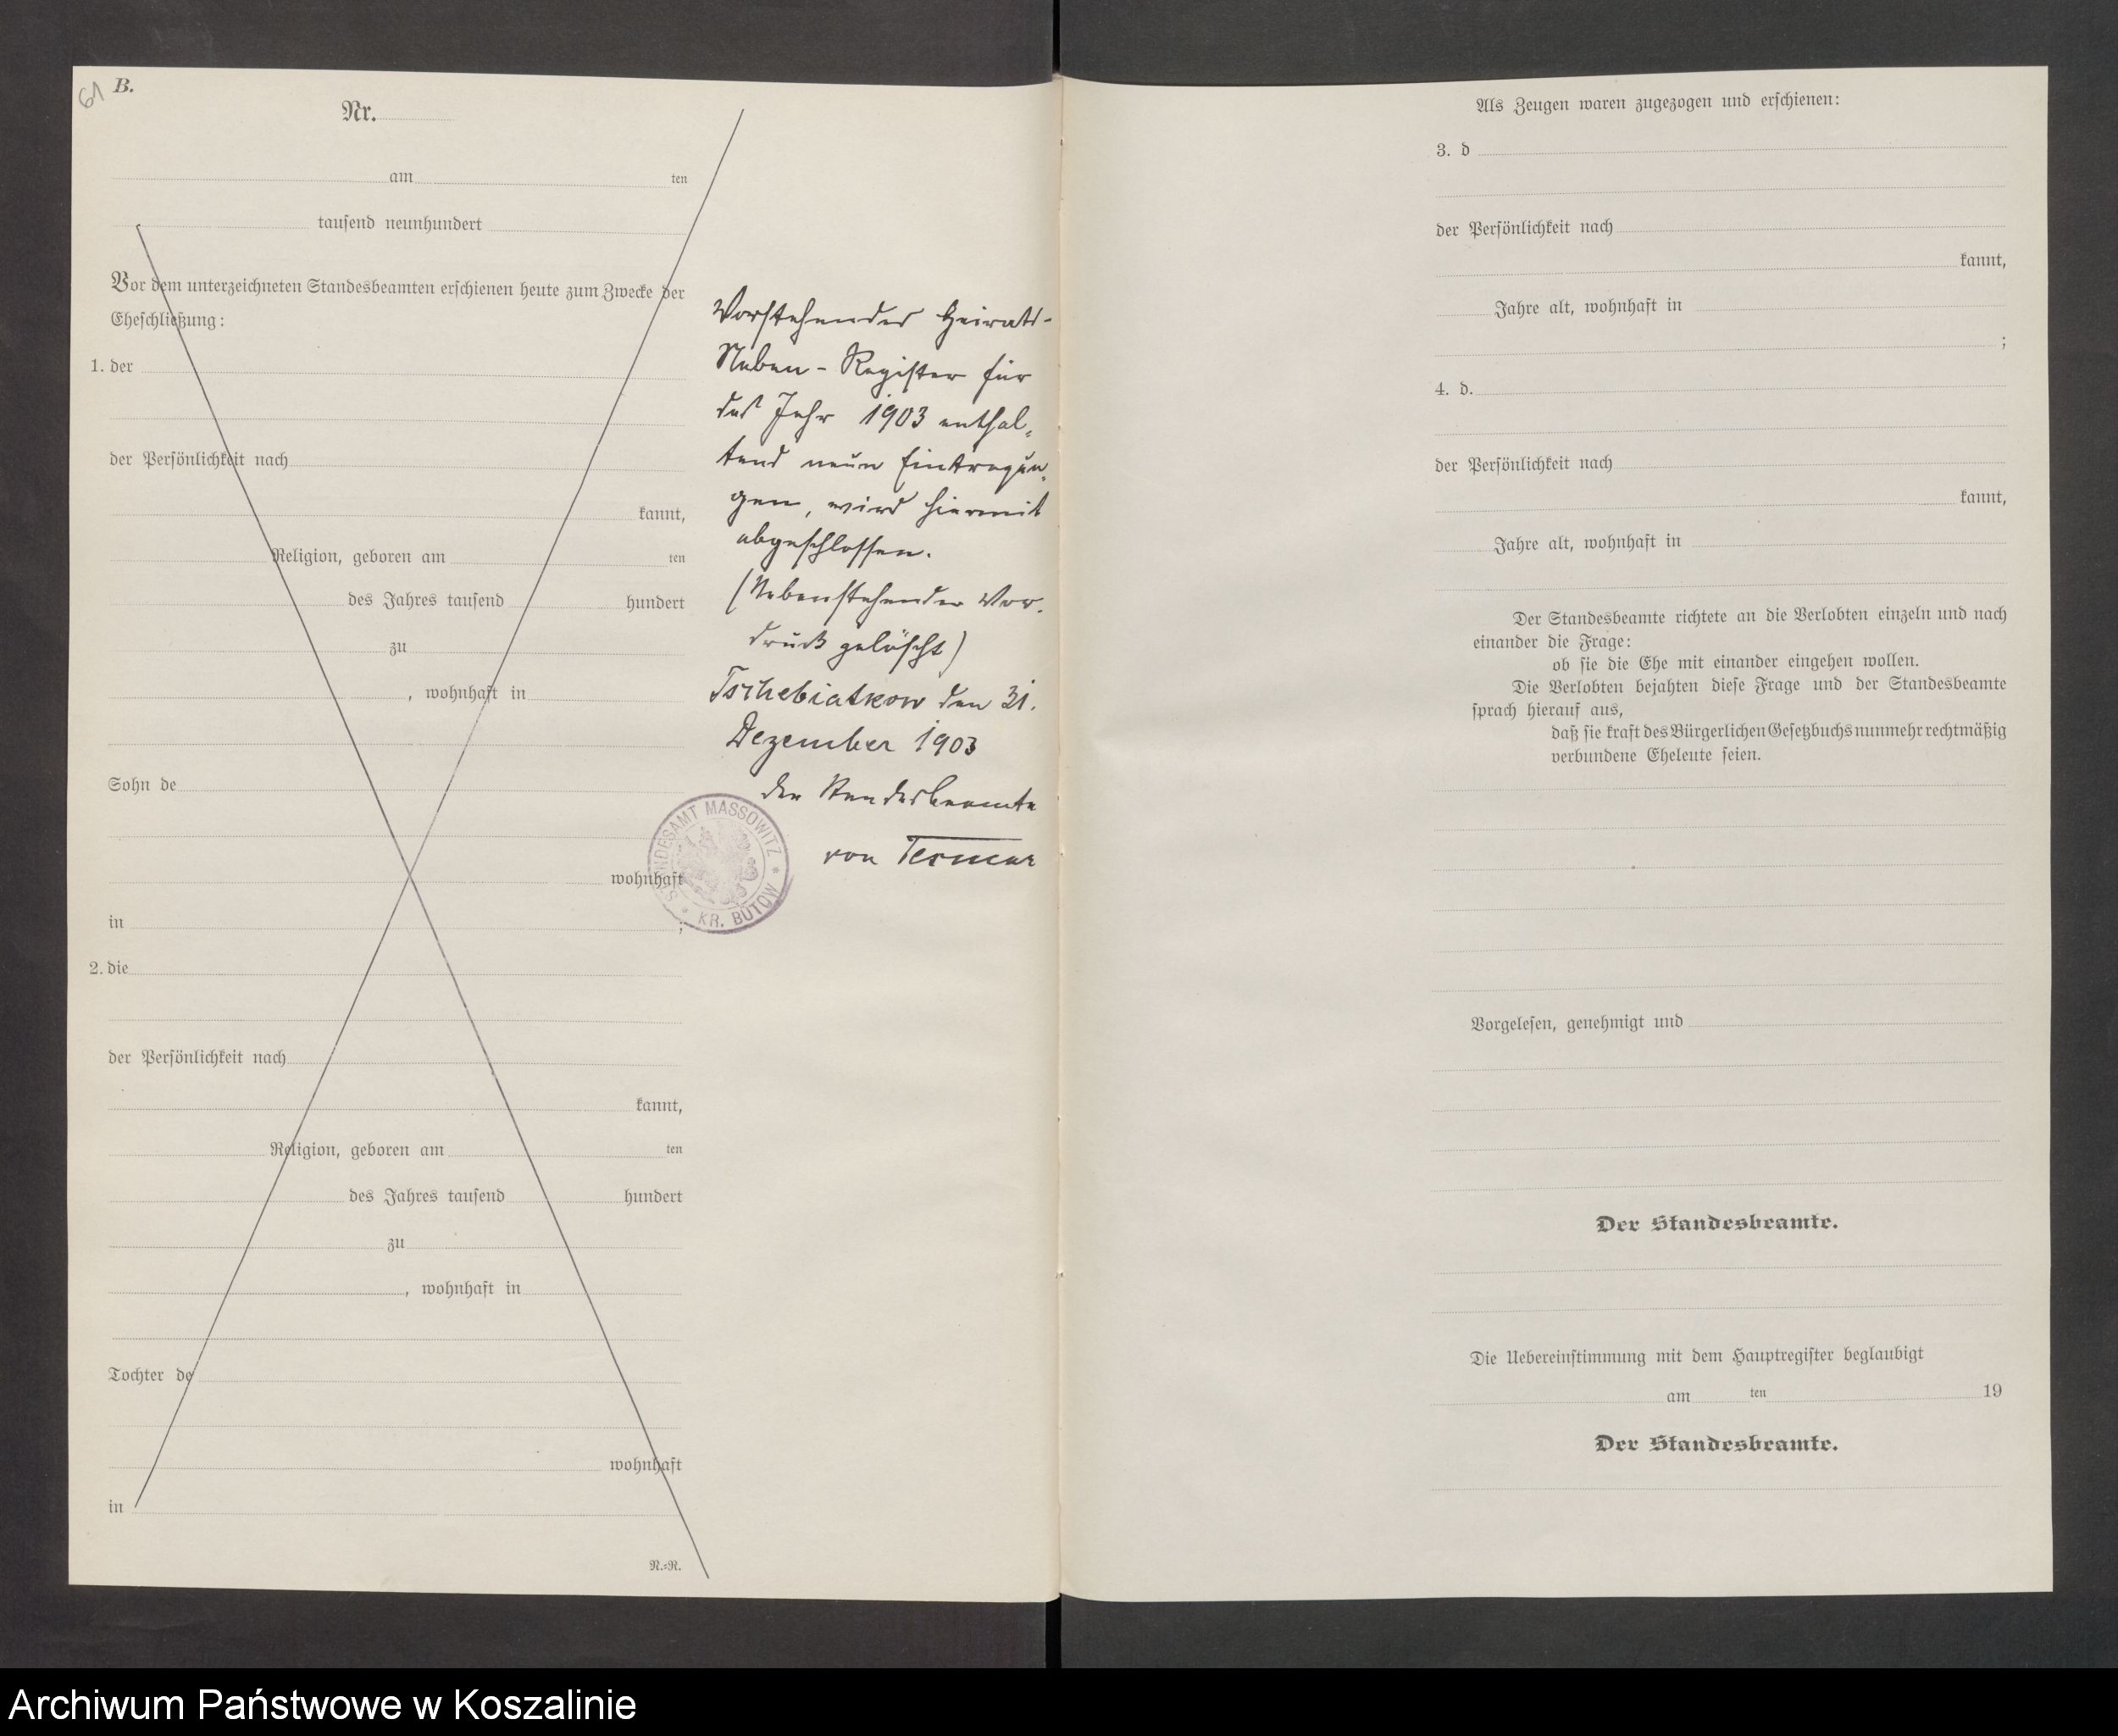 61
B.
Nr.
am ten
tausend neunhundert
Vor dem unterzeichneten Standesbeamten erschienen heute zum Zwecke der
Eheschließung:
1. der
der Persönlichkeit nach
kannt,
Religion, geboren am ten
des Jahres tausend hundert
zu
, wohnhaft in
Sohn de
wohnhaft
in ;
2. die
der Persönlichkeit nach
kannt,
Religion, geboren am ten
des Jahres tausend hundert
zu
, wohnhaft in
Tochter de
wohnhaft
in
N.=R.
Vorstehendes Heirats-
Neben-Register für
das Jahr 1903 enthal-
tend neun Eintragun-
gen, wird hiermit
abgeschlossen.
(Nebenstehender Vor-
druck gelöscht)
Tschebiatkow den 31.
Dezember 1903
der Standesbeamte
von
STANDESAMT MASSOWITZ * KR. BÜTOW *
Als Zeugen waren zugezogen und erschienen:
3. d
der Persönlichkeit nach
kannt,
Jahre alt, wohnhaft in
;
4. d.
der Persönlichkeit nach
kannt,
Jahre alt, wohnhaft in
Der Standesbeamte richtete an die Verlobten einzeln und nach
einander die Frage:
ob sie die Ehe mit einander eingehen wollen.
Die Verlobten bejahten diese Frage und der Standesbeamte
sprach hierauf aus,
daß sie kraft des Bürgerlichen Gesetzbuchs nunmehr rechtmäßig
verbundene Eheleute seien.
Vorgelesen, genehmigt und
Der Standesbeamte.
Die Uebereinstimmung mit dem Hauptregister beglaubigt
am ten 19
Der Standesbeamte.
Archiwum Państwowe w Koszalinie